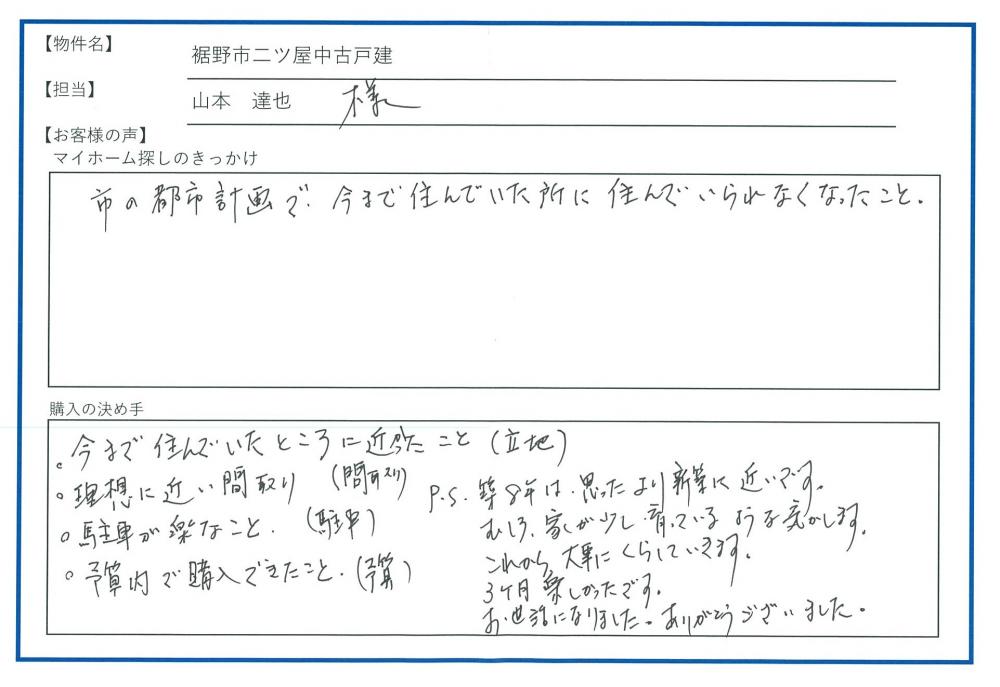 【物件名】
裾野市二ツ屋中古戸建
【担当】
山本 達也 様
【お客様の声】
マイホーム探しのきっかけ
市の都市計画で、今まで住んでいた所に住んでいられなくなったこと。
購入の決め手
。今まで住んでいたところに近かったこと (立地)
。理想に近い間取り (間取り)
。駐車が楽なこと. (駐車)
。予算内で購入できたこと. (予算)
P.S. 築8年は、思ったより新築に近いです。
むしろ、家が少し育っているような気がします。
これから大事にくらしていきます。
3ヶ月楽しかったです。
お世話になりました。ありがとうございました。